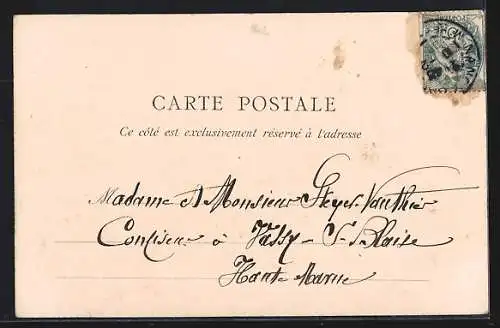 CARTE POSTALE
Ce côté est exclusivement réservé à l'adresse
Madame & Monsieur Steyer-Vauthier
Confiseur à Vassy - S-Blaise
Haute Marne